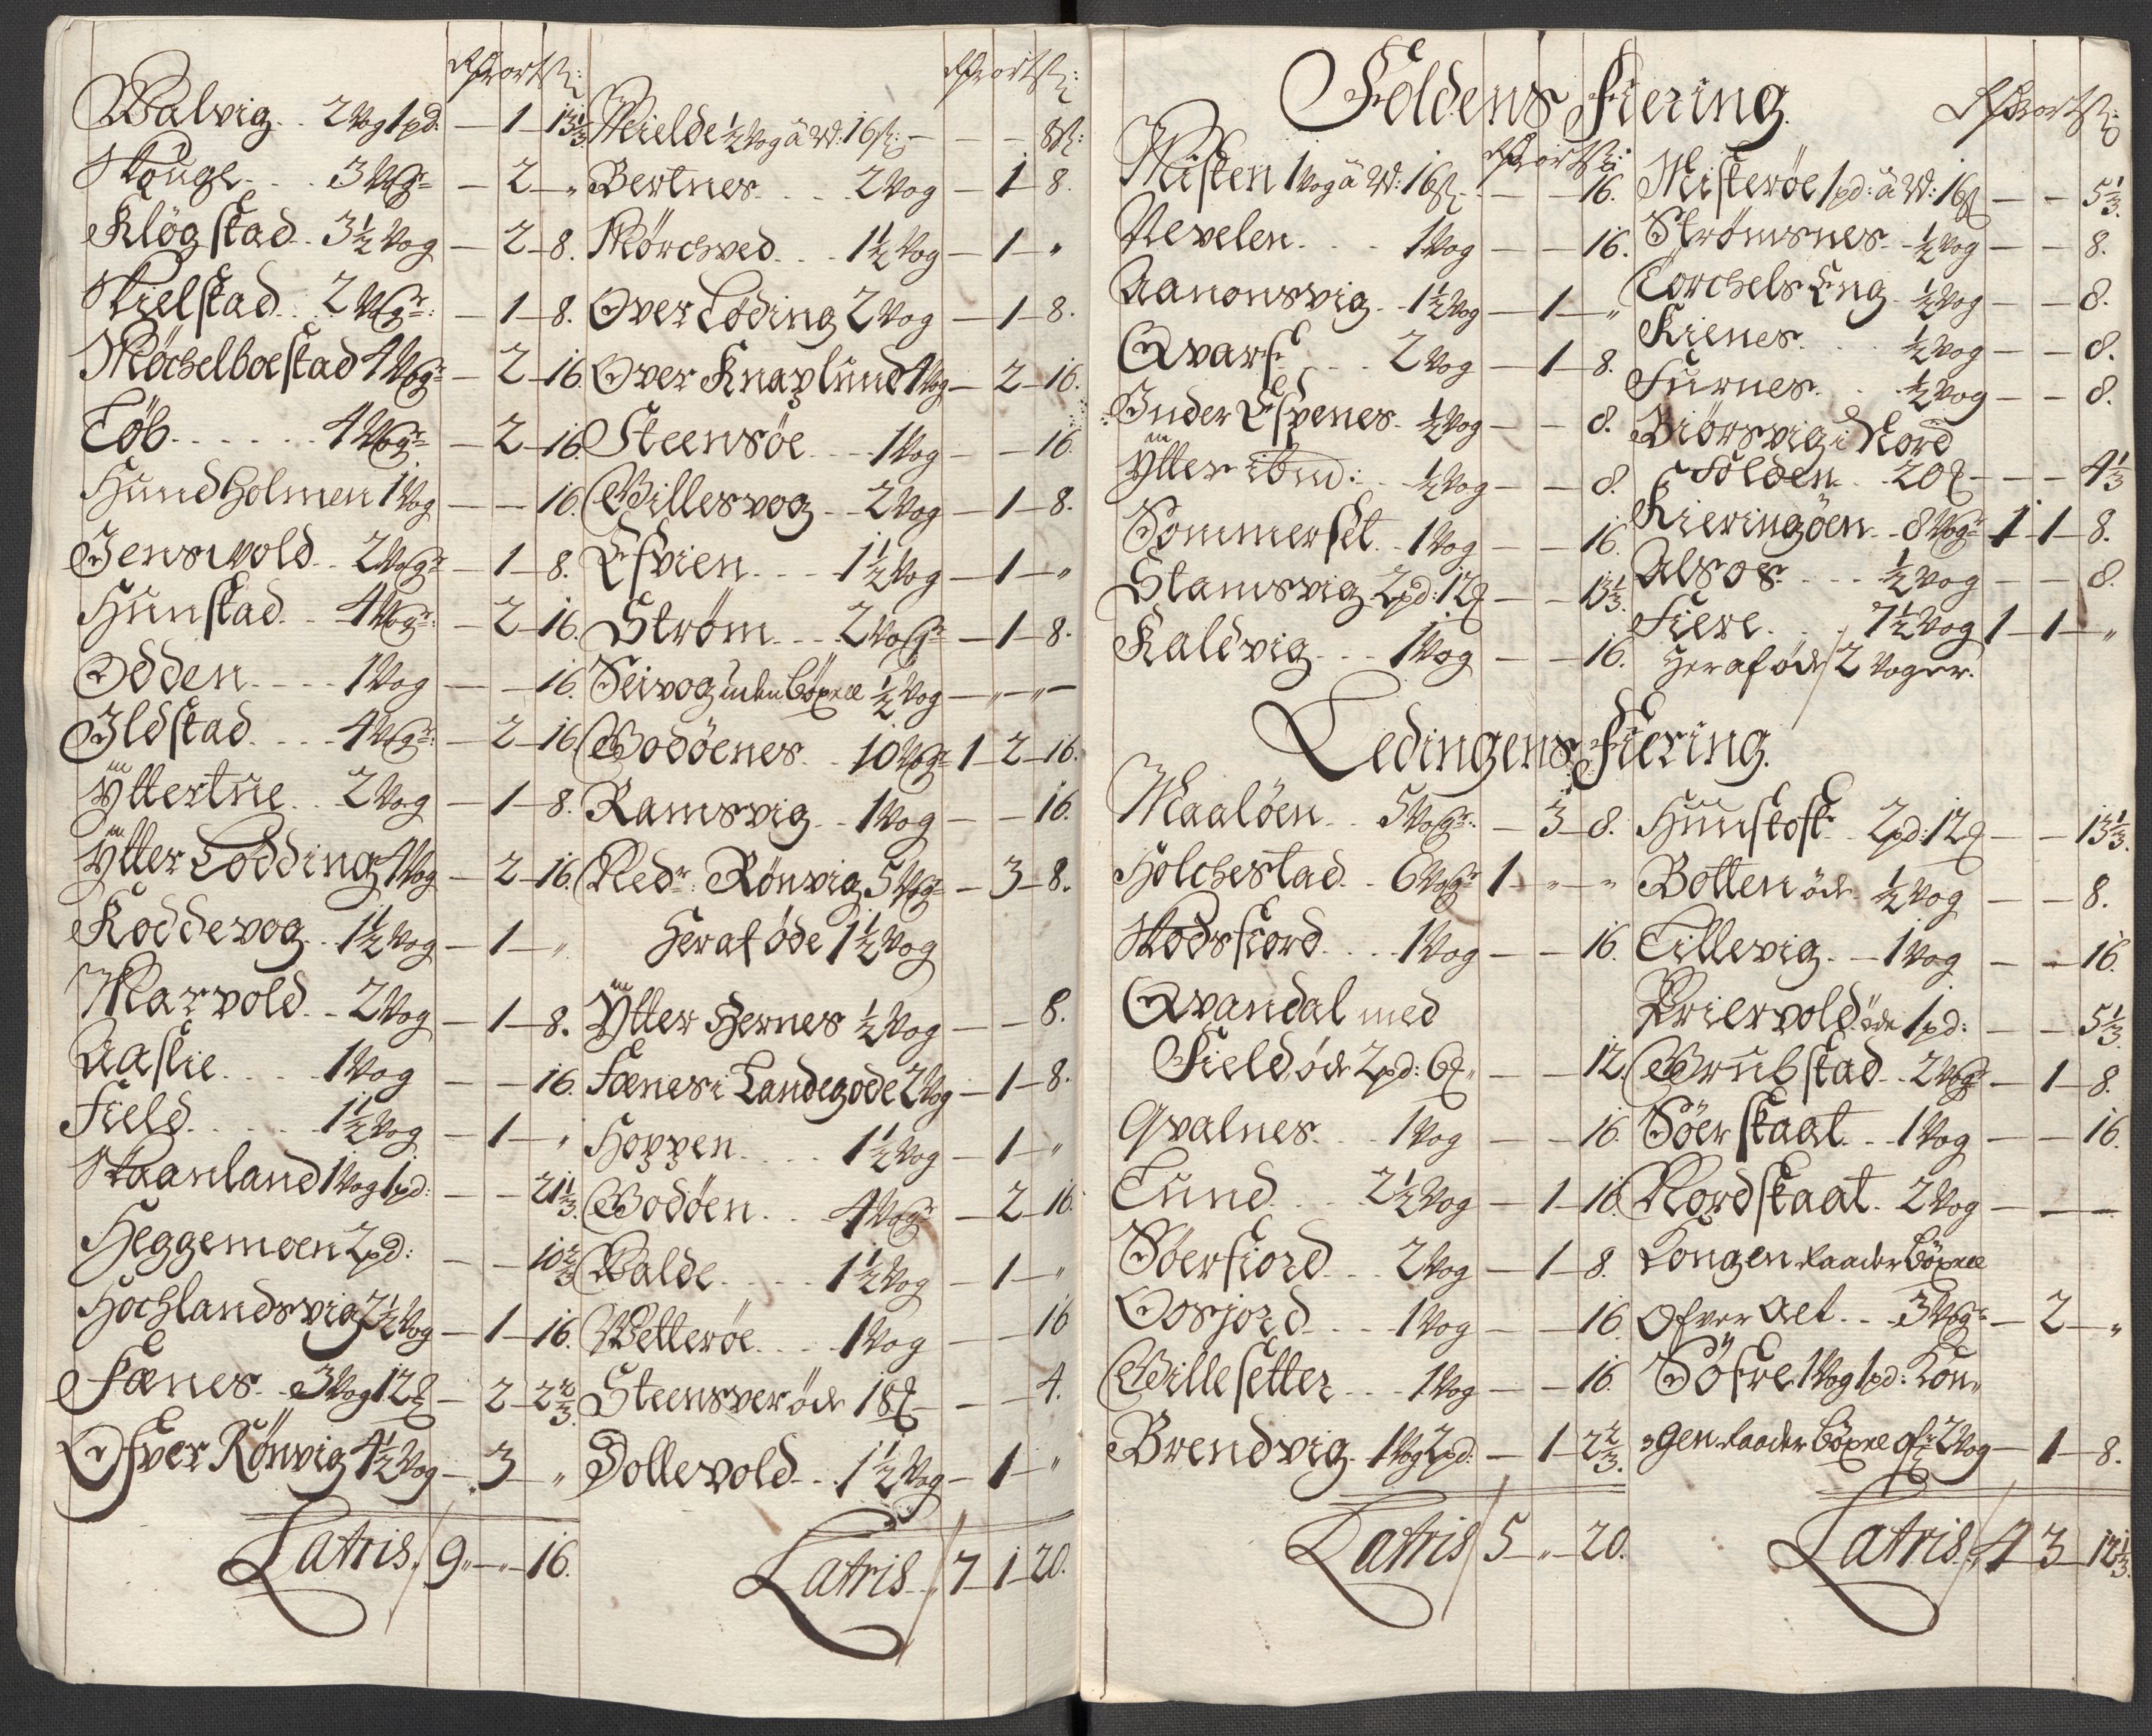 Rdr ort ß:
Walvig. 2 Vog 1 pd: — 1 — 13 1/3
Skouge . . 3 Vogr — 2 — „
Klögstad . 3 1/2 Vog — 2 — 8.
Skielstad . 2 Vogr: — 1 — 8.
Möchelboestad 4 Vogr — 2 — 16.
Töb . . . . . 4 Vogr — 2 — 16.
Hundholmen 1 Vog — — 16.
Jensvold . . 2 Vogr — 1 — 8.
Hunstad . . 4 Vogr: — 2 — 16.
Odden . . . 1 Vog — — 16.
Ildstad . . . 4 Vogr: — 2 — 16.
Yttertue . . 2 Vog — 1 — 8.
Ytter Lödding 4 Vog — 2 — 16.
Koddevog . 1 1/2 Vog — 1 — „
Marvold . . 2 Vog — 1 — 8.
Aaslie . . . . 1 Vog — — 16.
Field . . . . . 1 1/2 Vog — 1 — „
Skaanland 1 Vog 1 pd: — — 21 1/3.
Heggemoen 2 pd: — — 10 2/3
Hochlandsvig 2 1/2 Vog — 1 — 16.
Fænes . . 3 Vog 12 — 2 — 2 2/3.
Ofver Rönvig 4 1/2 Vog — 3 — „
Latris / 9 — „ — 16.
Rdr ort ß:
Mielde 1/2 Vog â W: 16 ß: — — — 8 ß:
Bertnes . . . . 2 Vog — 1 — 8.
Mörchved . . . 1 1/2 Vog — 1 — „
Over Löding 2 Vog — 1 — 8.
Over Knaplund 4 Vog — 2 — 16.
Steensöe . . . 1 Vog — — 16.
Gillesvog . . 2 Vog — 1 — 8.
Esvien . . . 1 1/2 Vog — 1 — „
Ström . . . 2 Vogr — 1 — 8.
Seivog uden böxel 1/2 Vog — „ — „ —
Godöenes . . 10 Vogr 1 — 2 — 16.
Ramsvig . . 1 Vog — — 16.
Nedr: Rönvig 5 Vogr — 3 — 8.
Heraf öde 1 1/2 Vog
Ytter Hernes 1/2 Vog — — 8.
Fænes i Landegode 2 Vog — 1 — 8.
Hoppen . . . . 1 1/2 Vog — 1 — „
Godöen . . . 4 Vogr — 2 — 16.
Valde . . . . . 1 1/2 Vog — 1 — „
Wetteröe . . . . 1 Vog — — 16
Steensver öde 18 — — — 4.
Dollevold . . . 1 1/2 Vog — 1 — „
Latris / 7 — 1 — 20.
Foldens Fiering
Rdr ort ß:
Misten 1 Vog â W: 16 ß — — 16.
Nevelen . . . 1 Vog — — 16.
Aanonsvig . . 1 1/2 Vog — 1 — „
Qvarf . . . . 2 Vog — 1 — 8.
Inder Espenes . 1/2 Vog — — 8.
Ytter ibid: . . 1/2 Vog — — 8.
Sommerset . . 1 Vog — — 16.
Stamsvig 2 pd: 12 — — 13 1/3.
Kaldvig . . . 1 Vog — — 16.
Rdr ort ß
Misteröe 1 pd: â W: 16 ß — — 5 1/3.
Strömsnes . . 1/2 Vog — — 8.
Torchels Eng . 1/2 Vog — — 8.
Kienes . . . . 1/2 Vog — — 8.
Furnes . . . . 1/2 Vog — — 8.
Biörsvig i Nord
Folden . . 20 — — — 4 1/3
Kieringöen . . 8 Vogr 1 — 1 — 8.
Alsos . . . . 1/2 Vog — — 8.
Fiere . . . 7 1/2 Vog 1 — 1 — „
Heraf öde / 2 Voger.
Ledingens Fiering.
Maalöen . . . 5 Vogr: — 3 — 8.
Holchestad . . 6 Vogr 1 — „ — „
Skodsfiord . . . . 1 Vog — — 16.
Qvandal med
Field öde 2 pd: 6 „ — — 12.
Qvalnes . . . 1 Vog — — 16.
Tund . . . 2 1/2 Vog — 1 — 16.
Söerfiord . . . 2 Vog — 1 — 8.
Oosjord . . . . 1 Vog — — 16.
Gillesetter . . . 1 Vog — — 16.
Brendvig . 1 Vog 2 pd: — 1 — 2 2/3.
Latris / 5 — „ — 20.
Hunstoft . . 2 pd: 12 — — 13 1/3.
Botten öde . 1/2 Vog — — 8.
Tillevig . — 1 Vog — — 16.
Kriervold öde 1 pd: — — 5 1/3.
Grubstad . . 2 Vogr — 1 — 8.
Söer skaat . . 1 Vog — — 16.
Nordskaat . 2 Vog — — —
Kongen raader böxel
Ofver Aet . . . 3 Vogr — 2 — „
Söfre 1 Vog 1 pd: Kon„
„gen raader böxel ofr 2 Vog — 1 — 8.
Latris / 4 — 3 — 12 1/3.